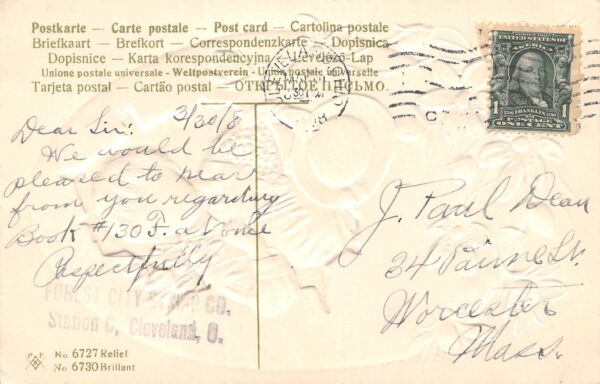 Postkarte – Carte postale – Post card – Cartolina postale
Briefkaart – Brefkort – Correspondenzkarte – Dopisnica
Dopisnice – Karta korespondencyjna – Levelező-Lap
Unione postale universale - Weltpostverein - Union postale universelle
Tarjeta postal – Cartão postal – ОТКРЫТОЕ ПИСЬМО.
CLEVELAND, OHIO
UNITED STATES OF AMERICA
FRANKLIN
1 POSTAGE 1
ONE CENT
3/30/8
Dear Sir:
We would be
pleased to hear
from you regarding
Book #130 F. at once
Respectfully
FOREST CITY STAMP CO.
Station C, Cleveland, O.
J. Paul Dean
34 Paine St.
Worcester
Mass.
P.F.
No 6727 Relief
No 6730 Brillant